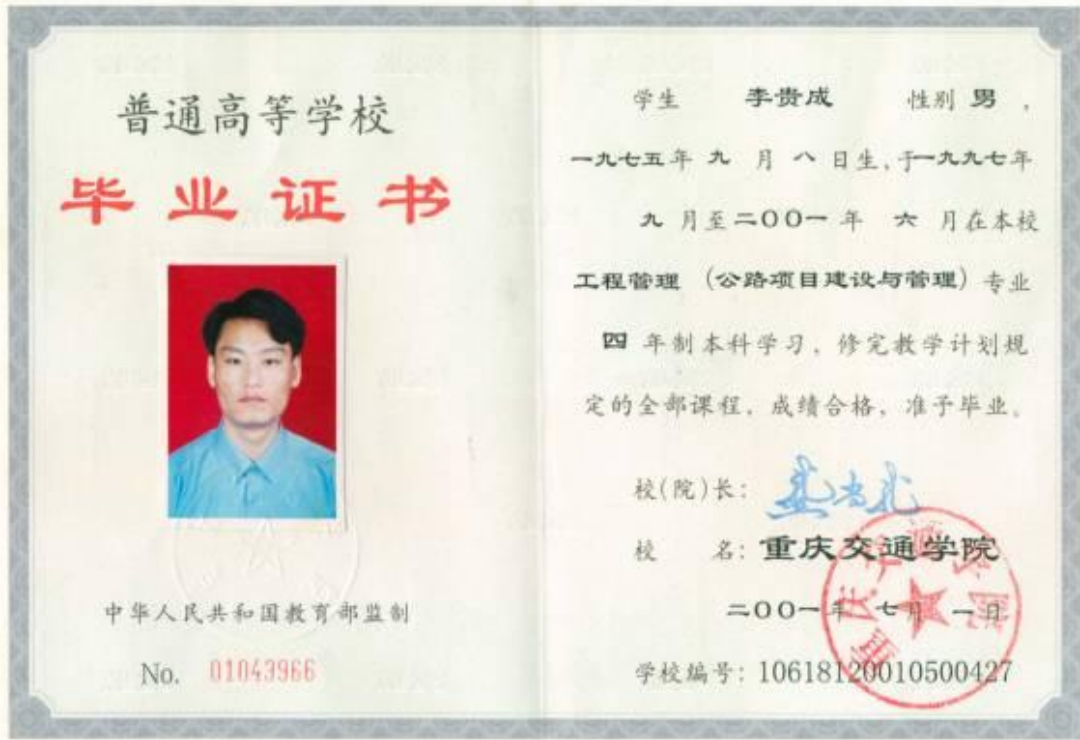 普通高等学校
毕业证书
中华人民共和国教育部监制
No. 01043966
学生 李贵成 性别 男，
一九七五年 九 月 八 日生，于一九九七年
九 月至二〇〇一 年 六 月在本校
工程管理 （公路项目建设与管理）专业
四 年制本科学习，修完教学计划规
定的全部课程，成绩合格，准予毕业。
校(院)长：
校 名：重庆交通学院
二〇〇一年 七月 一日
学校编号：10618120010500427
重庆交通学院